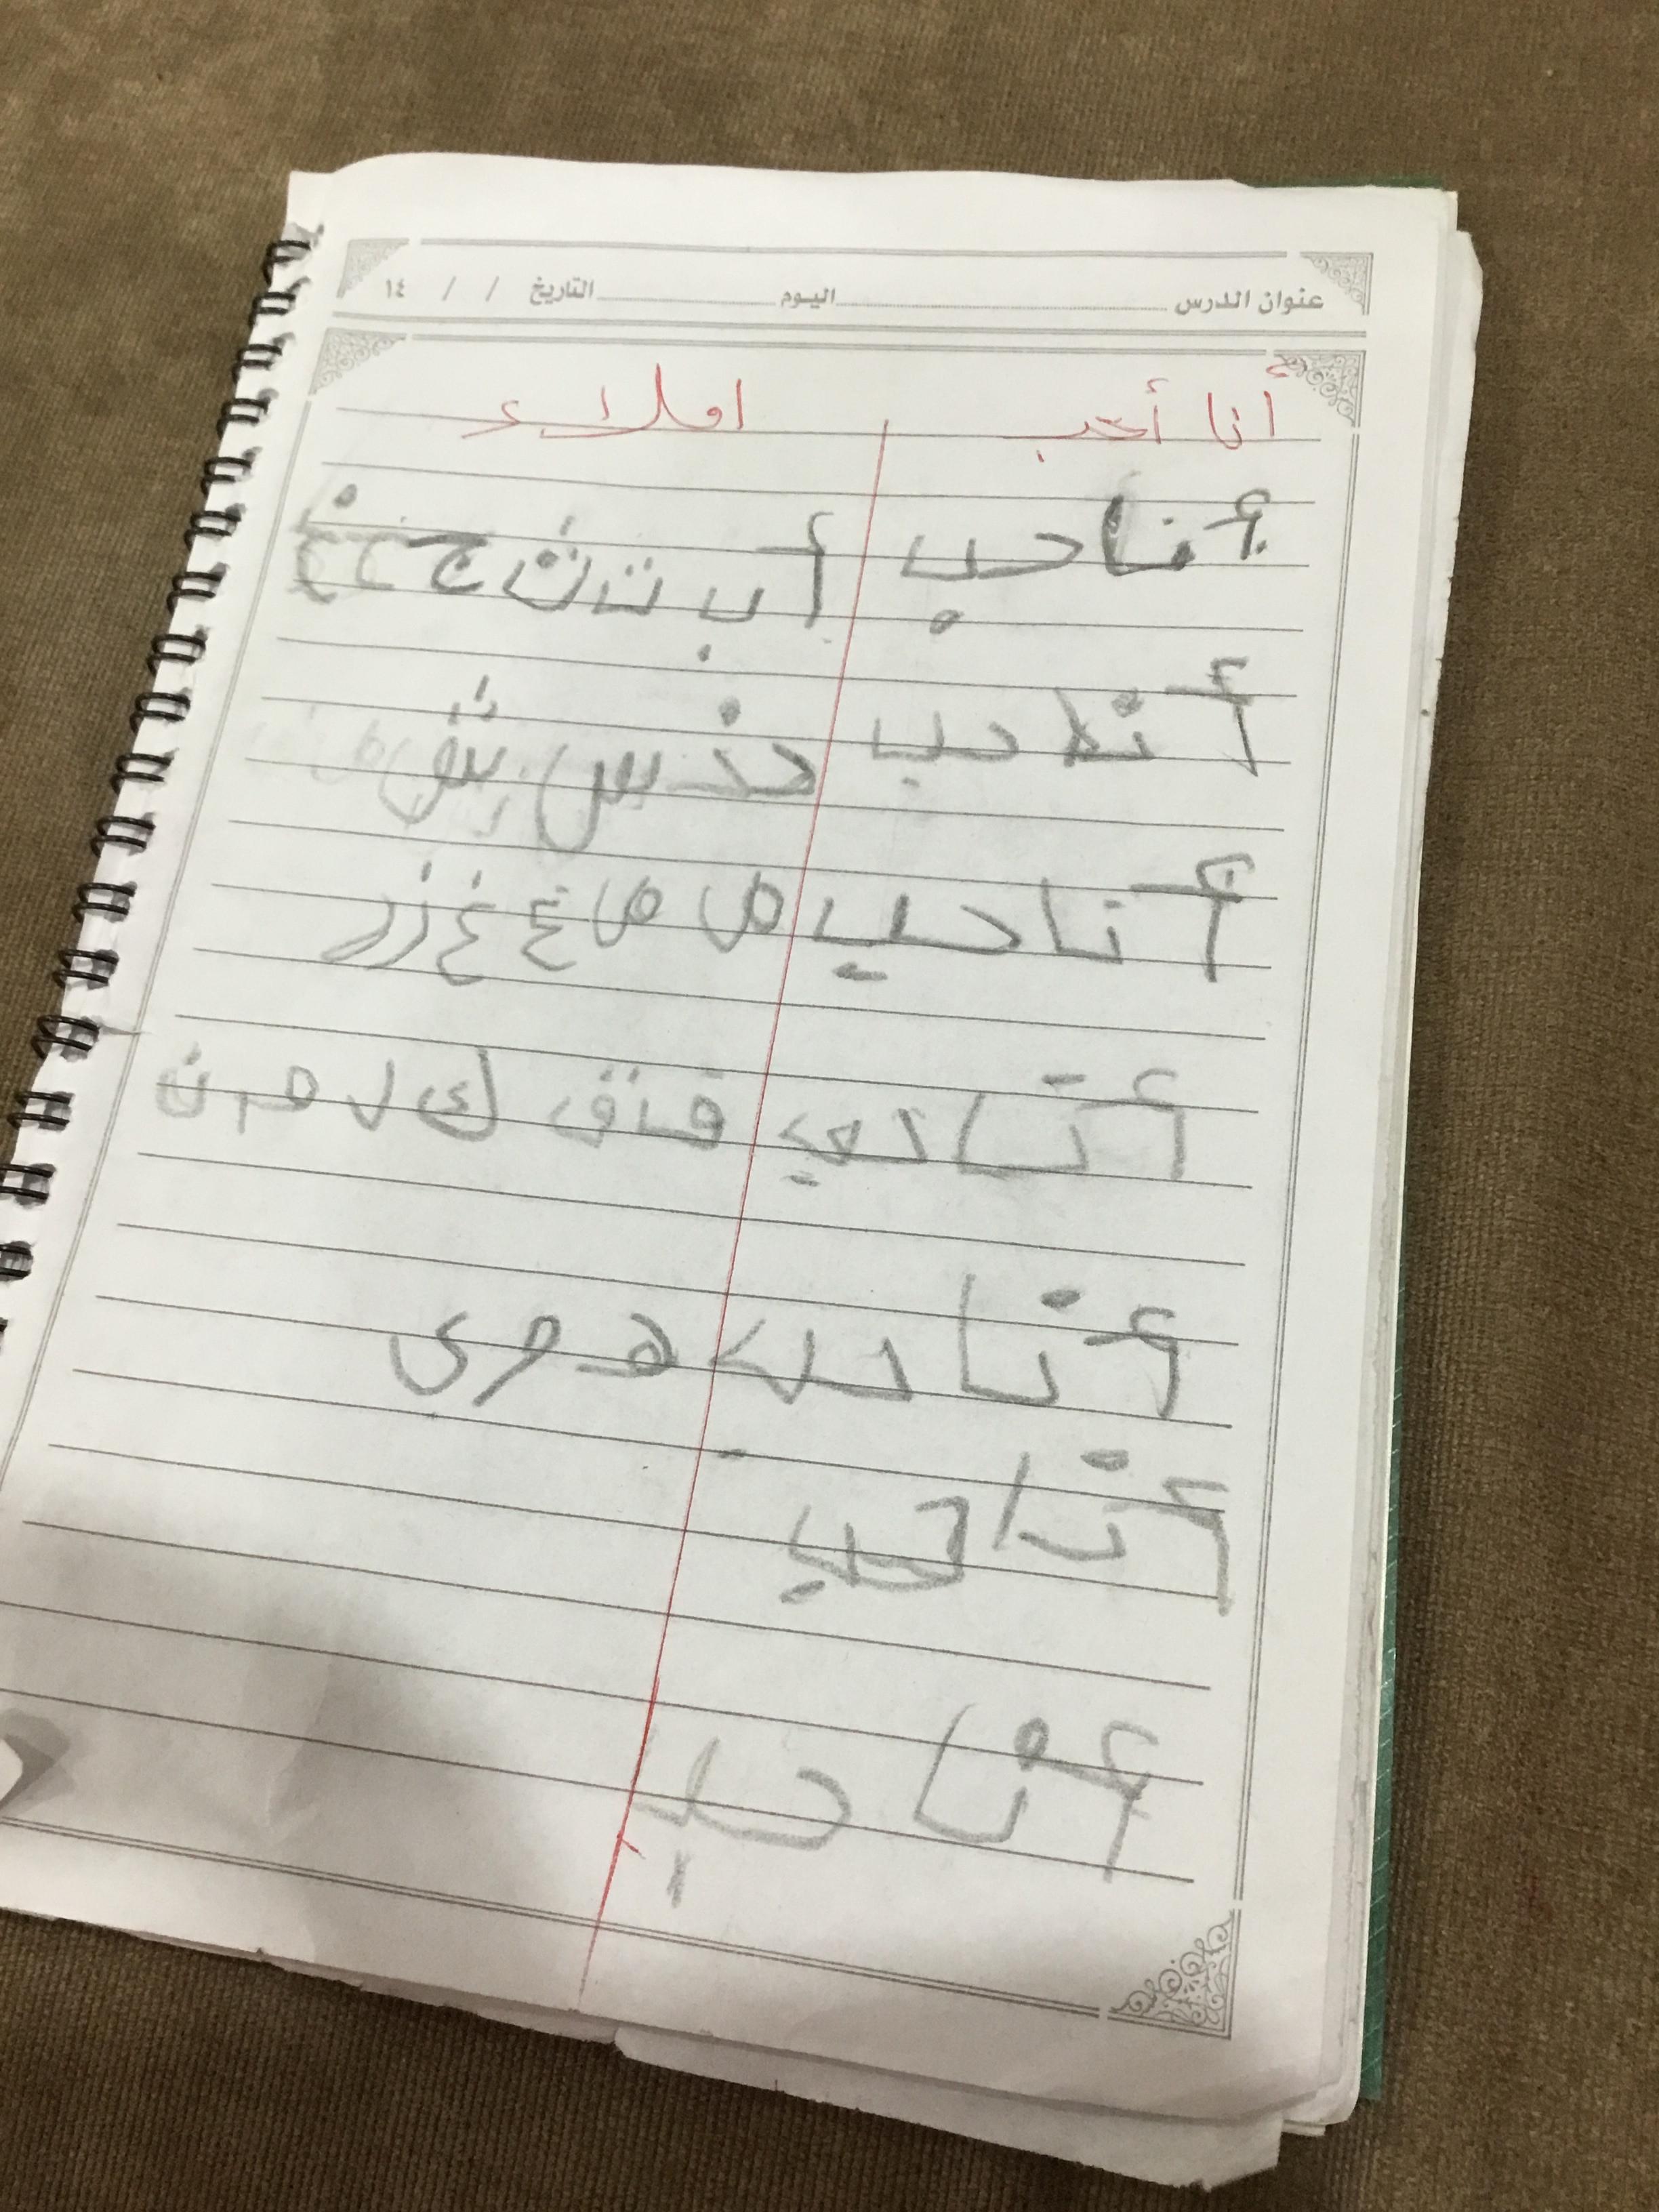 عنوان الدرس اليوم التاريخ / / ١٤
أنا أحب املاء
أنا حب أ ب ت ث ج
أنا حب د ذ س ش
أنا حب ص ض ع غ ز ر
أنا حب ف ق ك ل م ن
أنا حب هـ و ى
أنا حب
أنا حب